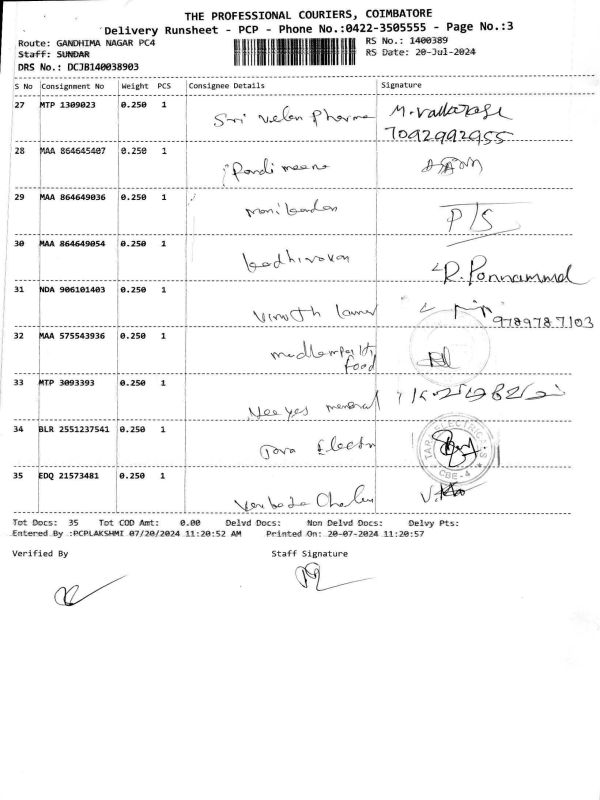 THE PROFESSIONAL COURIERS, COIMBATORE
Delivery Runsheet - PCP - Phone No.:0422-3505555 - Page No.:3
Route: GANDHIMA NAGAR PC4
RS No.: 1400389
Staff: SUNDAR
RS Date: 20-Jul-2024
DRS No.: DCJB140038903
S No Consignment No Weight PCS Consignee Details Signature
27 MTP 1309023 0.250 1
Sri Velan Pharma
7092992955
28 MAA 864645407 0.250 1
Pandi meena
29 MAA 864649036 0.250 1
manikandan
P/S
30 MAA 864649054 0.250 1
kadhiravan
R. Ponnammal
31 NDA 906101403 0.250 1
Vinoth
9789787103
32 MAA 575543936 0.250 1
food
33 MTP 3093393 0.250 1
34 BLR 2551237541 0.250 1
Tara Electri
TARA ELECTRICALS
CBE-4
35 EDQ 21573481 0.250 1
Tot Docs: 35 Tot COD Amt: 0.00 Delvd Docs: Non Delvd Docs: Delvy Pts:
Entered By :PCPLAKSHMI 07/20/2024 11:20:52 AM Printed On: 20-07-2024 11:20:57
Verified By Staff Signature